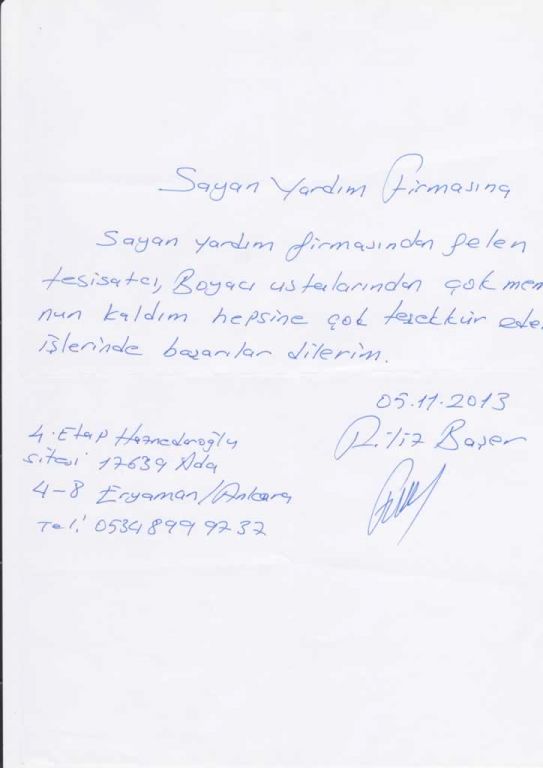 Sayan Yardım Firmasına
Sayan yardım firmasından gelen
tesisatcı, Boyacı ustalarından çok mem
nun kaldım hepsine çok teşekkür eder
işlerinde başarılar dilerim.
05.11.2013
Filiz Başer
4. Etap Haznedaroğlu
sitesi 17639 Ada
4-8 Eryaman/Ankara
Tel: 0534 899 97 37